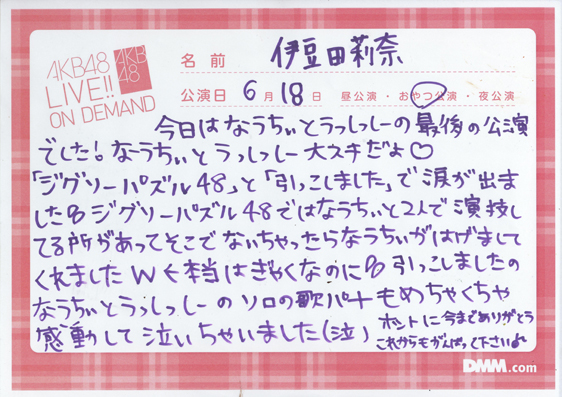 AKB48
LIVE!!
ON DEMAND
AKB
48
名前 伊豆田莉奈
公演日 6月18日 昼公演・おやつ公演・夜公演
今日はなうちぃとうっしっしーの最後の公演
でした!なうちぃとうっしっしー大スキだよ♡
「ジグソーパズル48」と「引っこしました」で涙が出ま
した ジグソーパズル48ではなうちぃと2人で演技し
てる所があってそこでないちゃったらなうちぃがはげまして
くれましたw←本当はぎゃくなのに 引っこしましたの
なうちぃとうっしっしーのソロの歌パートもめちゃくちゃ
感動して泣いちゃいました(泣)
ホントに今までありがとう
これからもがんばって下さいね
DMM.com